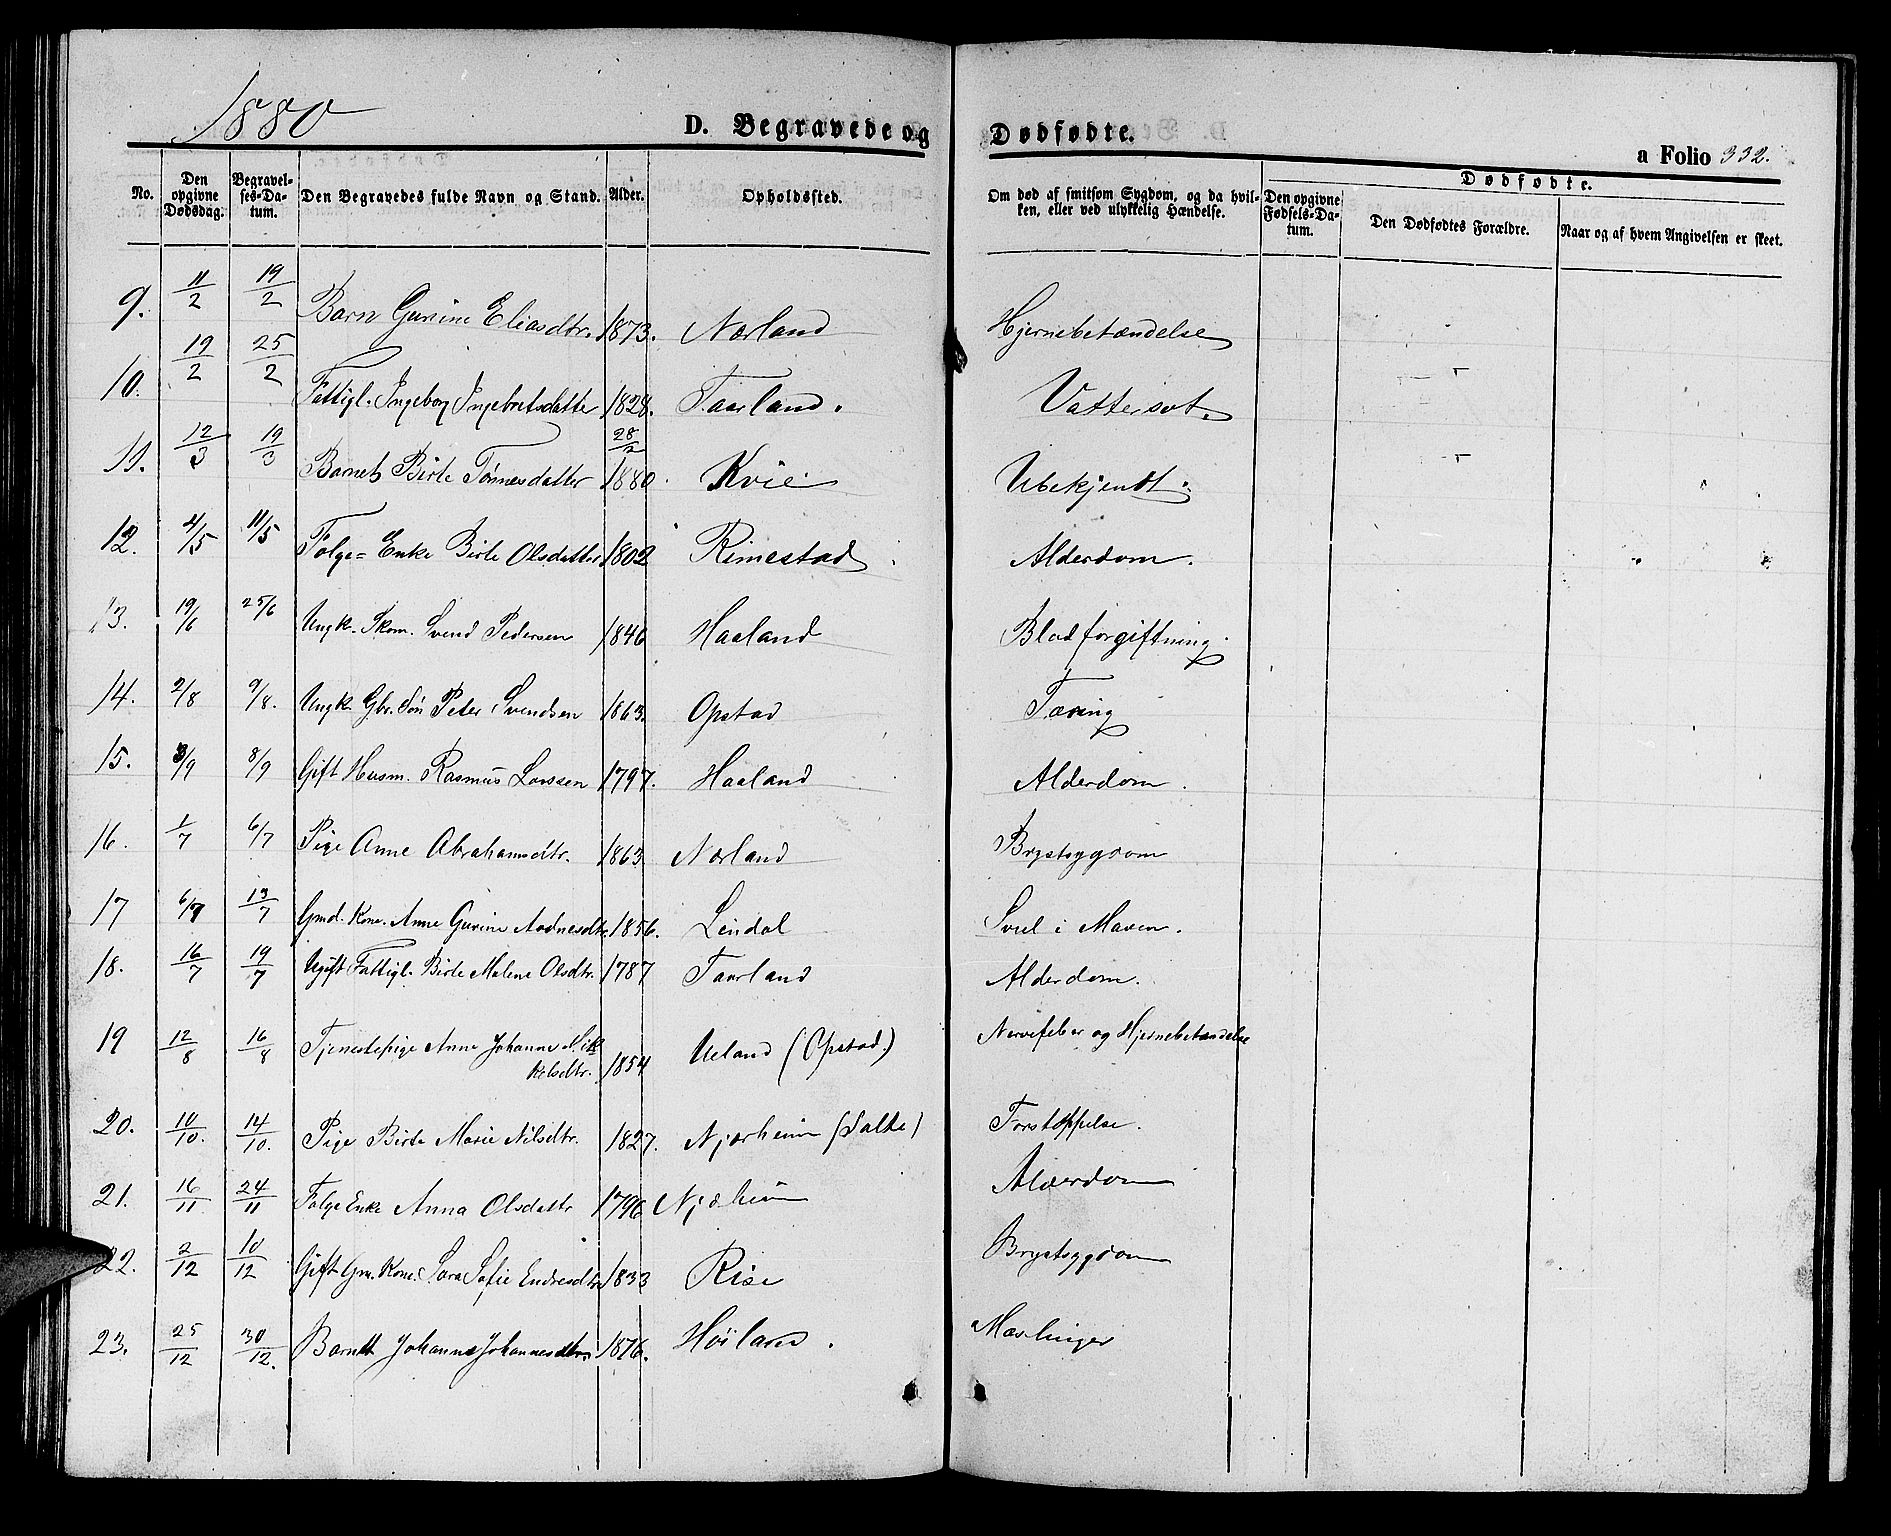 1880
D. Begravede og Dødfødte.
a Folio 332.
No. Den opgivne Dødsdag. Begravelses-Datum. Den Begravedes fulde Navn og Stand. Alder. Opholdssted. Om død af smitsom Sygdom, og da hvilken, eller ved ulykkelig Hændelse. Dødfødte. Den opgivne Fødsels-Datum. Den Dødfødtes Forældre. Naar og af hvem Angivelsen er skeet.
9. 11/2 19/2 Barn Gurine Eliasdtr. 1873. Nærland Hjernebetændelse
10. 19/2 25/2 Fattigl. Ingeborg Ingebretsdatter 1828. Taarland. Vattersot.
11. 12/3 19/3 Barnet Birte Tønnesdatter 28/2 1880. Kvie Ubekjendt.
12. 4/5 11/5 Folge-Enke Birte Olsdatter 1802 Rimestad Alderdom.
13. 19/6 25/6 Ungk. Skom. Svend Pedersen 1846 Haaland Blodforgiftning.
14. 2/8 9/8. Ungk. Gbr. Søn Peter Svendsen 1863. Opstad Tæring
15. 3/9 8/9 Gift Husm. Rasmus Larssen 1797. Haaland Alderdom.
16. 1/7 6/7 Pige Anne Abrahamsdtr. 1863 Nærland Brystsygdom
17 6/7 13/7 Gmd. Kone. Anne Gurine Aadnesdtr. 1856. Lindal Svul i Maven.
18. 16/7 19/7 Ugift Fattigl. Birte Malene Olsdtr. 1787 Taarland Alderdom.
19 12/8 16/8 Tjenestepige Anne Johanne Mikkelsdtr. 1854 Ueland (Opstad.) Nervefeber og Hjernebetændelse
20. 10/10. 14/10. Pige Birte Marie Nilsdtr. 1827. Njærheim (Salte) Forstoppelse.
21. 16/11 24/11 Folge Enke Anna Olsdattr 1796 Njæheim Alderdom
22. 2/12 10/12 Gift Gm. Kone. Sara Sofie Endresdtr. 1833 Risе Brystsygdom
23. 25/12 30/12. Barnet Johanne Johannesdtr. 1876. Høiland. Mæslinger